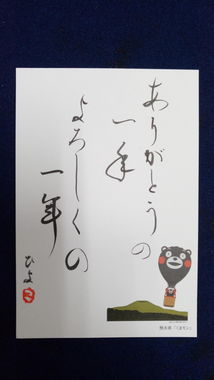 ありがとうの
一年
よろしくの
一年
ひよ
熊本県「くまモン」